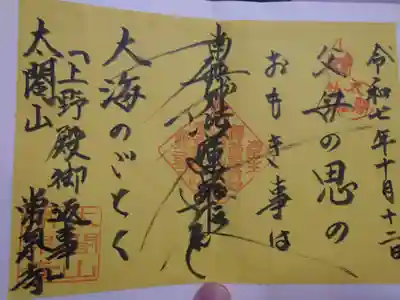 令和七年十月十二日
父母の恩の
おもき事は
南無妙法蓮華経
大海のごとく
「上野殿御返事」
太閤山 常泉寺